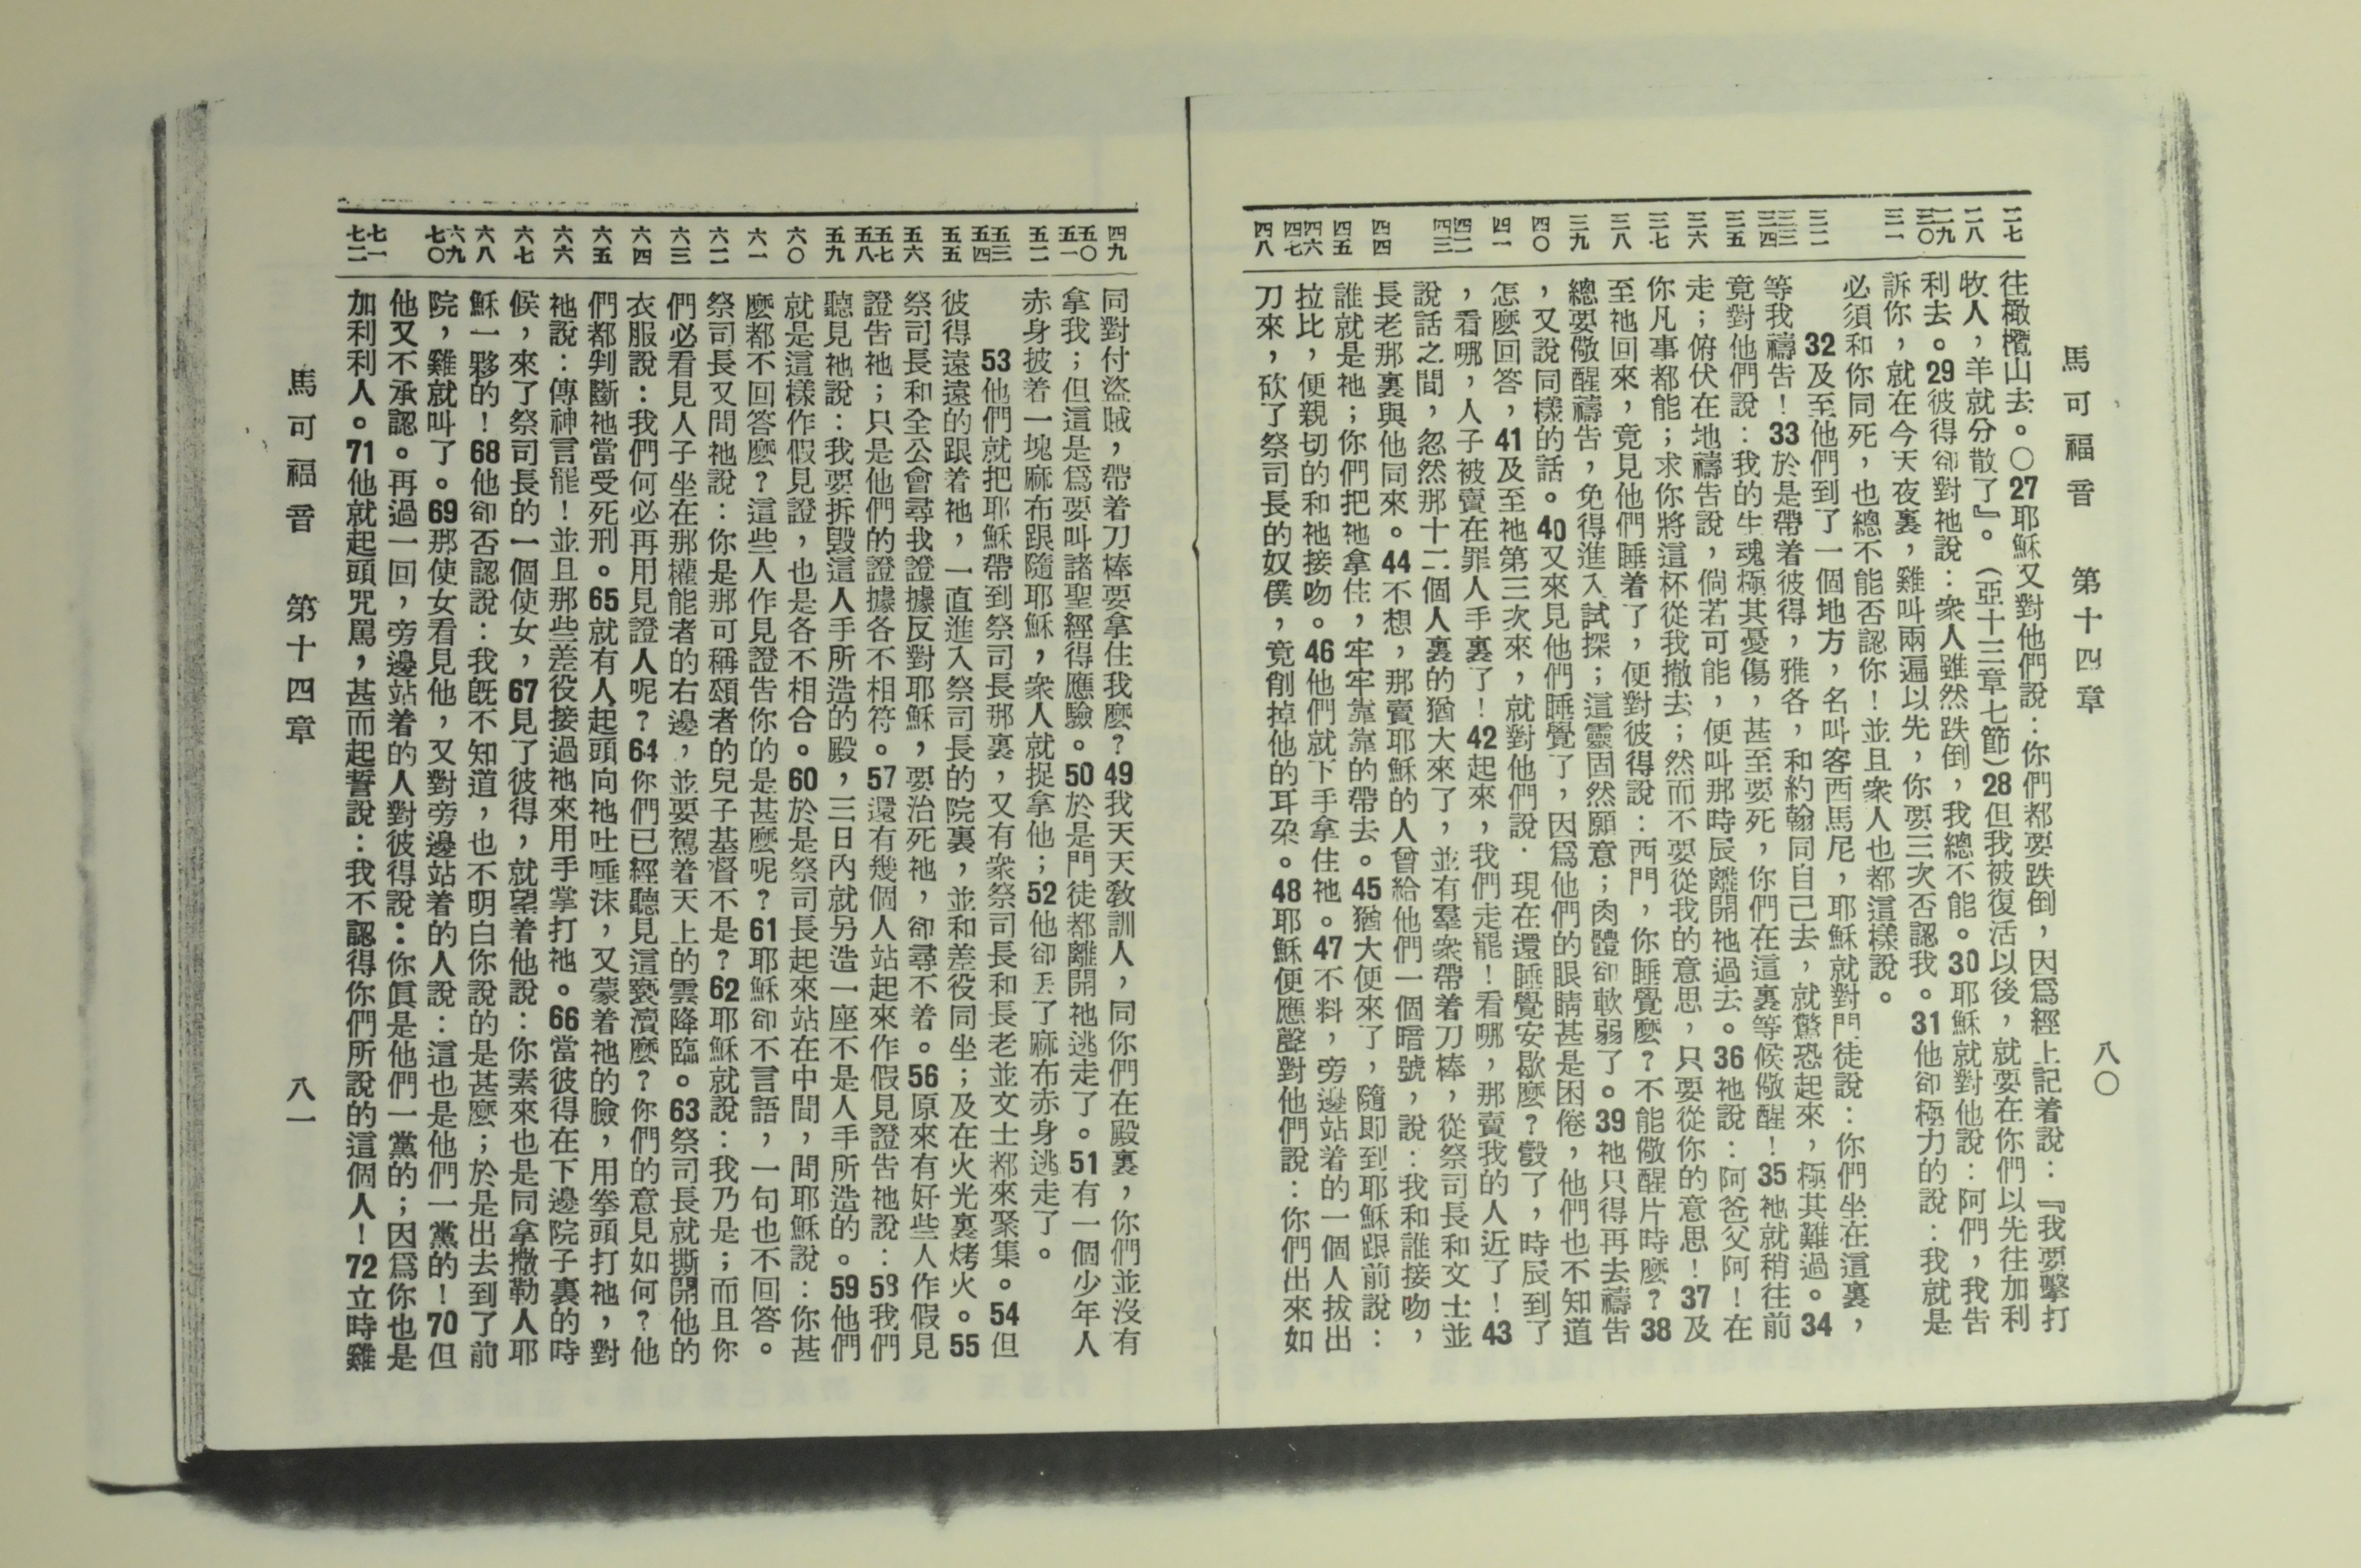 馬可福音 第十四章 八〇
二七 二八 二九 三〇 三一 三二 三三 三四 三五 三六 三七 三八 三九 四〇 四一 四二 四三 四四 四五 四六 四七 四八
往橄欖山去。〇27耶穌又對他們說：你們都要跌倒，因爲經上記着說：『我要擊打
牧人，羊就分散了』。（亞十三章七節）28但我被復活以後，就要在你們以先往加利
利去。29彼得卻對祂說：衆人雖然跌倒，我總不能。30耶穌就對他說：阿們，我告
訴你，就在今天夜裏，雞叫兩遍以先，你要三次否認我。31他卻極力的說：我就是
必須和你同死，也總不能否認你！並且衆人也都這樣說。
32及至他們到了一個地方，名叫客西馬尼，耶穌就對門徒說：你們坐在這裏，
等我禱告！33於是帶着彼得，雅各，和約翰同自己去，就驚恐起來，極其難過。34
竟對他們說：我的生魂極其憂傷，甚至要死，你們在這裏等候儆醒！35祂就稍往前
走；俯伏在地禱告說，倘若可能，便叫那時辰離開祂過去。36祂說：阿爸父阿！在
你凡事都能；求你將這杯從我撤去；然而不要從我的意思，只要從你的意思！37及
至祂回來，竟見他們睡着了，便對彼得說：西門，你睡覺麼？不能儆醒片時麼？38
總要儆醒禱告，免得進入試探；這靈固然願意；肉體卻軟弱了。39祂只得再去禱告
，又說同樣的話。40又來見他們睡覺了，因爲他們的眼睛甚是困倦，他們也不知道
怎麼回答，41及至祂第三次來，就對他們說．現在還睡覺安歇麼？彀了，時辰到了
，看哪，人子被賣在罪人手裏了！42起來，我們走罷！看哪，那賣我的人近了！43
說話之間，忽然那十二個人裏的猶大來了，並有羣衆帶着刀棒，從祭司長和文士並
長老那裏與他同來。44不想，那賣耶穌的人曾給他們一個暗號，說：我和誰接吻，
誰就是祂；你們把祂拿住，牢牢靠靠的帶去。45猶大便來了，隨即到耶穌跟前說：
拉比，便親切的和祂接吻。46他們就下手拿住祂。47不料，旁邊站着的一個人拔出
刀來，砍了祭司長的奴僕，竟削掉他的耳朶。48耶穌便應聲對他們說：你們出來如
四九 五〇 五一 五二 五三 五四 五五 五六 五七 五八 五九 六〇 六一 六二 六三 六四 六五 六六 六七 六八 六九 七〇 七一 七二
同對付盜賊，帶着刀棒要拿住我麼？49我天天敎訓人，同你們在殿裏，你們並沒有
拿我；但這是爲要叫諸聖經得應驗。50於是門徒都離開祂逃走了。51有一個少年人
赤身披着一塊麻布跟隨耶穌，衆人就捉拿他；52他卻丟了麻布赤身逃走了。
53他們就把耶穌帶到祭司長那裏，又有衆祭司長和長老並文士都來聚集。54但
彼得遠遠的跟着祂，一直進入祭司長的院裏，並和差役同坐；及在火光裏烤火。55
祭司長和全公會尋我證據反對耶穌，要治死祂，卻尋不着。56原來有好些人作假見
證告祂；只是他們的證據各不相符。57還有幾個人站起來作假見證告祂說：58我們
聽見祂說：我要拆毀這人手所造的殿，三日內就另造一座不是人手所造的。59他們
就是這樣作假見證，也是各不相合。60於是祭司長起來站在中間，問耶穌說：你甚
麼都不回答麼？這些人作見證告你的是甚麼呢？61耶穌卻不言語，一句也不回答。
祭司長又問祂說：你是那可稱頌者的兒子基督不是？62耶穌就說：我乃是；而且你
們必看見人子坐在那權能者的右邊，並要駕着天上的雲降臨。63祭司長就撕開他的
衣服說：我們何必再用見證人呢？64你們已經聽見這褻瀆麼？你們的意見如何？他
們都判斷祂當受死刑。65就有人起頭向祂吐唾沫，又蒙着祂的臉，用拳頭打祂，對
祂說：傳神言罷！並且那些差役接過祂來用手掌打祂。66當彼得在下邊院子裏的時
候，來了祭司長的一個使女，67見了彼得，就望着他說：你素來也是同拿撒勒人耶
穌一夥的！68他卻否認說：我旣不知道，也不明白你說的是甚麼；於是出去到了前
院，雞就叫了。69那使女看見他，又對旁邊站着的人說：這也是他們一黨的！70但
他又不承認。再過一回，旁邊站着的人對彼得說：你眞是他們一黨的；因爲你也是
加利利人。71他就起頭咒罵，甚而起誓說：我不認得你們所說的這個人！72立時雞
馬可福音 第十四章 八一